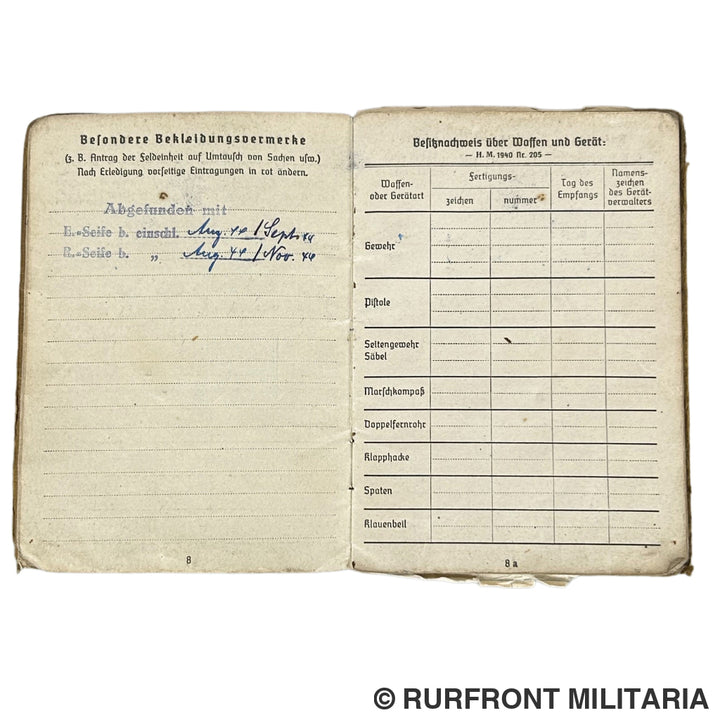 Besondere Bekleidungsvermerke
(z. B. Antrag der Feldeinheit auf Umtausch von Sachen usw.)
Nach Erledigung vorseitige Eintragungen in rot ändern.
Abgefunden mit
E.-Seife b. einschl. Aug. 44 / Sept. 44
R.-Seife b. „ Aug. 44 / Nov. 44
8
Besitznachweis über Waffen und Gerät:
— H. M. 1940 Nr. 205 —
Waffen- oder Geräteart
Fertigungs-
zeichen
nummer
Tag des Empfangs
Namens- zeichen des Gerät- verwalters
Gewehr
Pistole
Seitengewehr
Säbel
Marschkompaß
Doppelfernrohr
Klapphacke
Spaten
Klauenbeil
8a
© RURFRONT MILITARIA